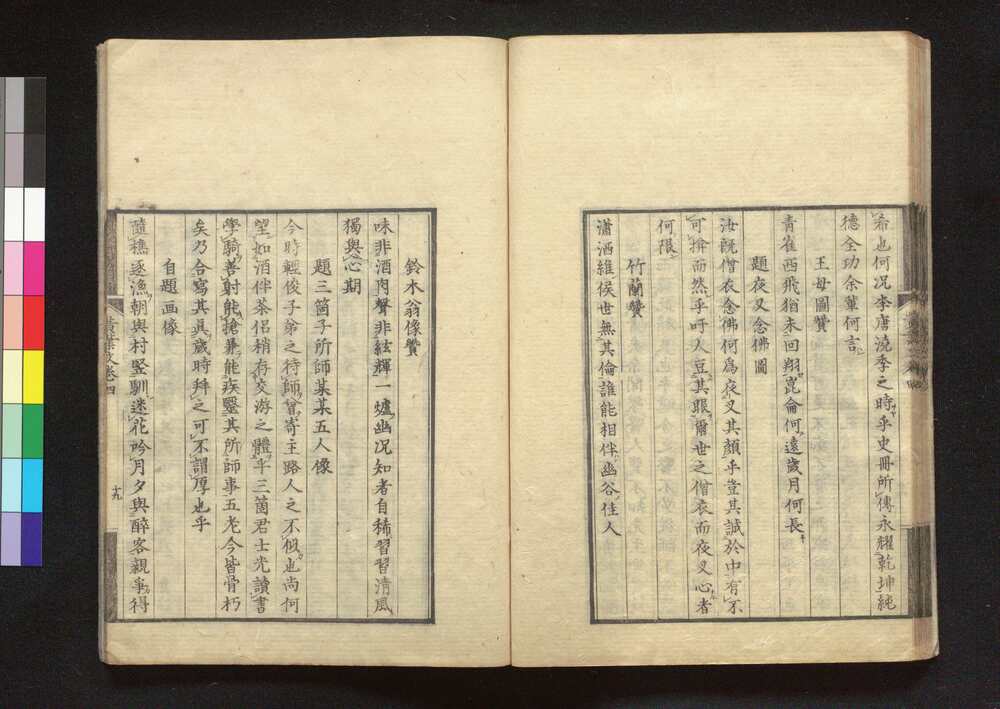 希也何況李唐澆季之時乎史冊所傳永耀乾坤純
德全功余輩何言
王母圖贊
青雀西飛猶未回翔崑侖何遠歲月何長
題夜叉念佛圖
汝既僧衣念佛何爲夜叉其顏乎豈其誠於中有不
可揜而然乎吁人豆其眼爾世之僧衣而夜叉心者
何限
竹蘭贊
瀟洒維侯世無其倫誰能相伴幽谷佳人
鈴木翁像贊
味非酒肉聲非絃輝一爐幽況知者自稀習習清風
獨與心期
題三箇子所師某某五人像
今時輕俊子弟之待師曾寄主路人之不似也尚何
望如酒伴茶侶稍存交游之體乎三箇君士光讀書
學騎善射能搶暴能疾毉其所師事五老今皆骨朽
矣乃合寫其真歲時拜之可不謂厚也乎
自題画像
隨樵逐漁朝與村豎馴迷花吟月夕與醉客親爭得
黃葉文卷四
十九